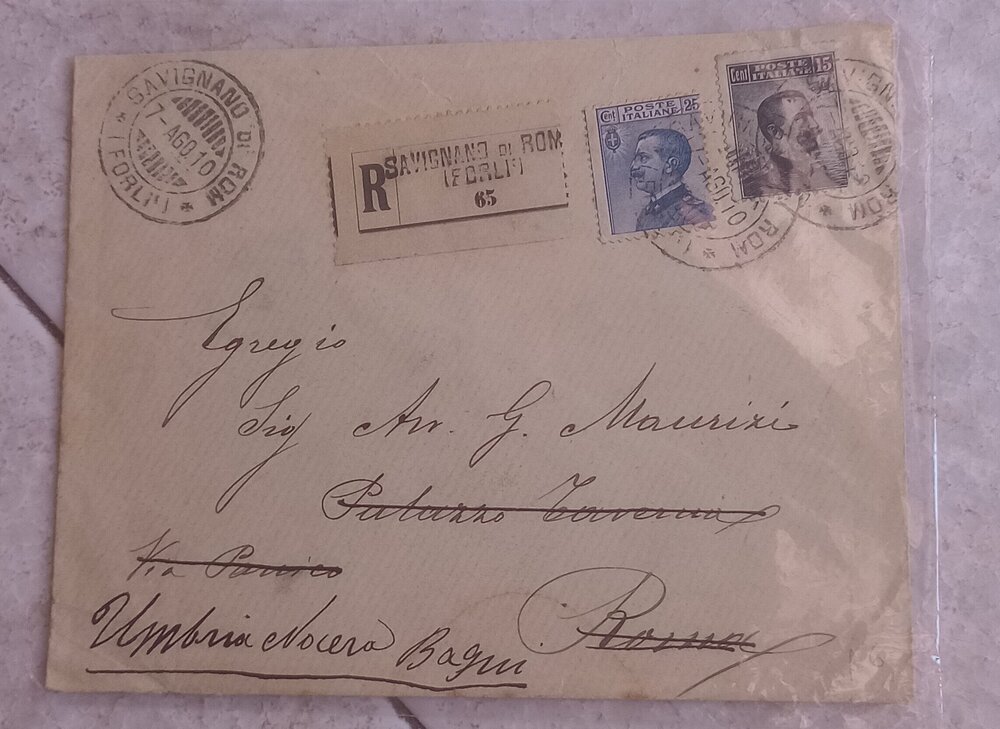 SAVIGNANO DI ROM
7-AGO.10
(FORLI')
R
SAVIGNANO DI ROM
(FORLI')
65
Cent 25
POSTE
ITALIANE
Cent 15
POSTE
ITALIANE
AGO.10
ROM
ROM
Egregio
Sig Avv. G. Maurizi
Palazzo Taverna
Via Panico
Roma
Umbria Nocera Bagni